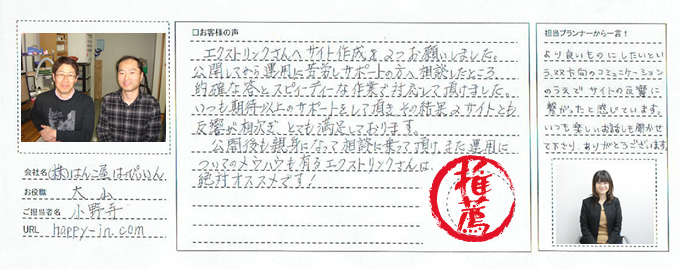 会社名 (株)はんこ屋はっぴいいん
お役職 大山
ご担当者名 小野寺
URL happy-in.com
□お客様の声
エクストリンクさんへサイト作成を2つお願いしました。
公開してから運用に苦労しサポートの方へ相談したところ
的確な答とスピーディーな作業で対応して頂けました。
いつも期待以上のサポートをして頂き、その結果2サイトとも
反響が相次ぎ、とても満足しております。
公開後も親身になって相談に乗って頂け、また運用に
ついてのノウハウも有るエクストリンクさんは、
絶対オススメです!
推薦
担当プランナーから一言!
より良いものにしたいという
双方向のコミュニケーション
のうえで、サイトの反響に
繋がったと感じています。
いつも楽しいお話も聞かせ
て下さり、ありがとうございます。